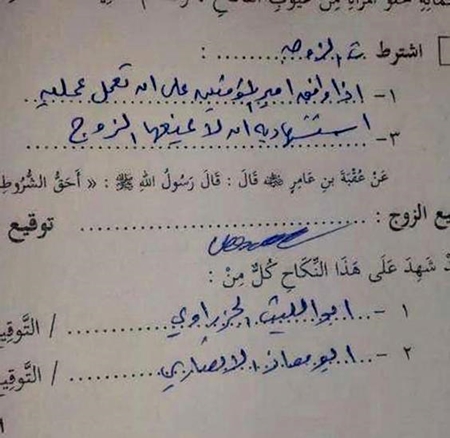 اشترطت الزوجه :
١- اذا وافق امير المؤمنين على ان تعمل عمليه
٣- استشهاديه ان لا يمنعها الزوج
عَنْ عُقْبَةَ بنِ عَامِرٍ ﷺ قَالَ : قَالَ رَسُولُ اللهِ ﷺ : « أَحَقُّ الشُّرُوطِ
يع الزوج : توقيع
دْ شَهِدَ عَلَى هَذَا النِّكَاحِ كُلٌّ مِنْ :
١ - ابو الليث الجزراوي / التَّوقِيع
٢ - ابو معاذ الانصاري / التَّوقِيع